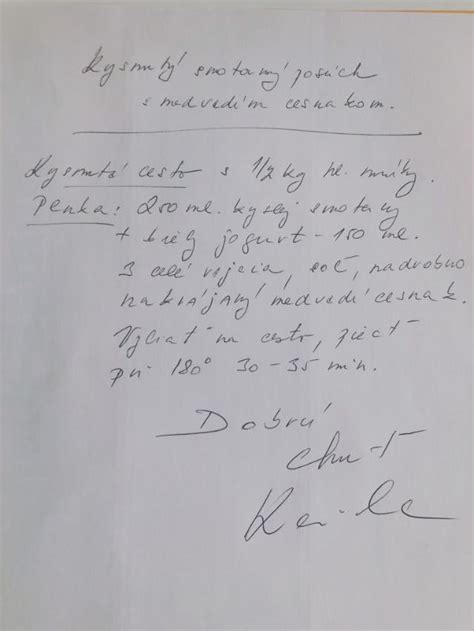 Kysnutý smotanový posúch
s medvedím cesnakom.
Kysnuté cesto s 1/2 kg hl. múky.
Penka: 250 ml. kyslej smotany
+ biely jogurt - 150 ml.
3 celé vajcia, soľ, nadrobno
nakrájaný medvedí cesnak.
Vyliať na cesto, piecť
pri 180° 30-35 min.
Dobrú
chuť